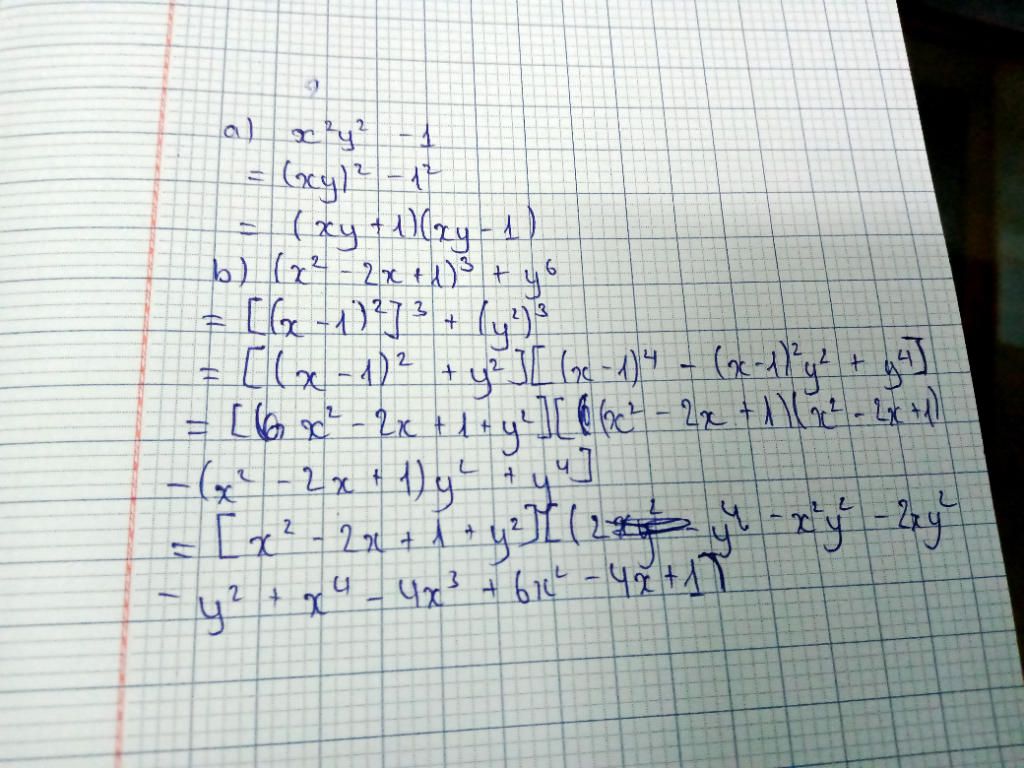 a) x²y² - 1
= (xy)² - 1²
= (xy + 1)(xy - 1)
b) (x² - 2x + 1)³ + y⁶
= [(x - 1)²]³ + (y²)³
= [(x - 1)² + y²][(x - 1)⁴ - (x - 1)²y² + y⁴]
= [x² - 2x + 1 + y²][(x² - 2x + 1)(x² - 2x + 1)
- (x² - 2x + 1)y² + y⁴]
= [x² - 2x + 1 + y²][(2 y⁴ - x²y² - 2xy²
- y² + x⁴ - 4x³ + 6x² - 4x + 1]